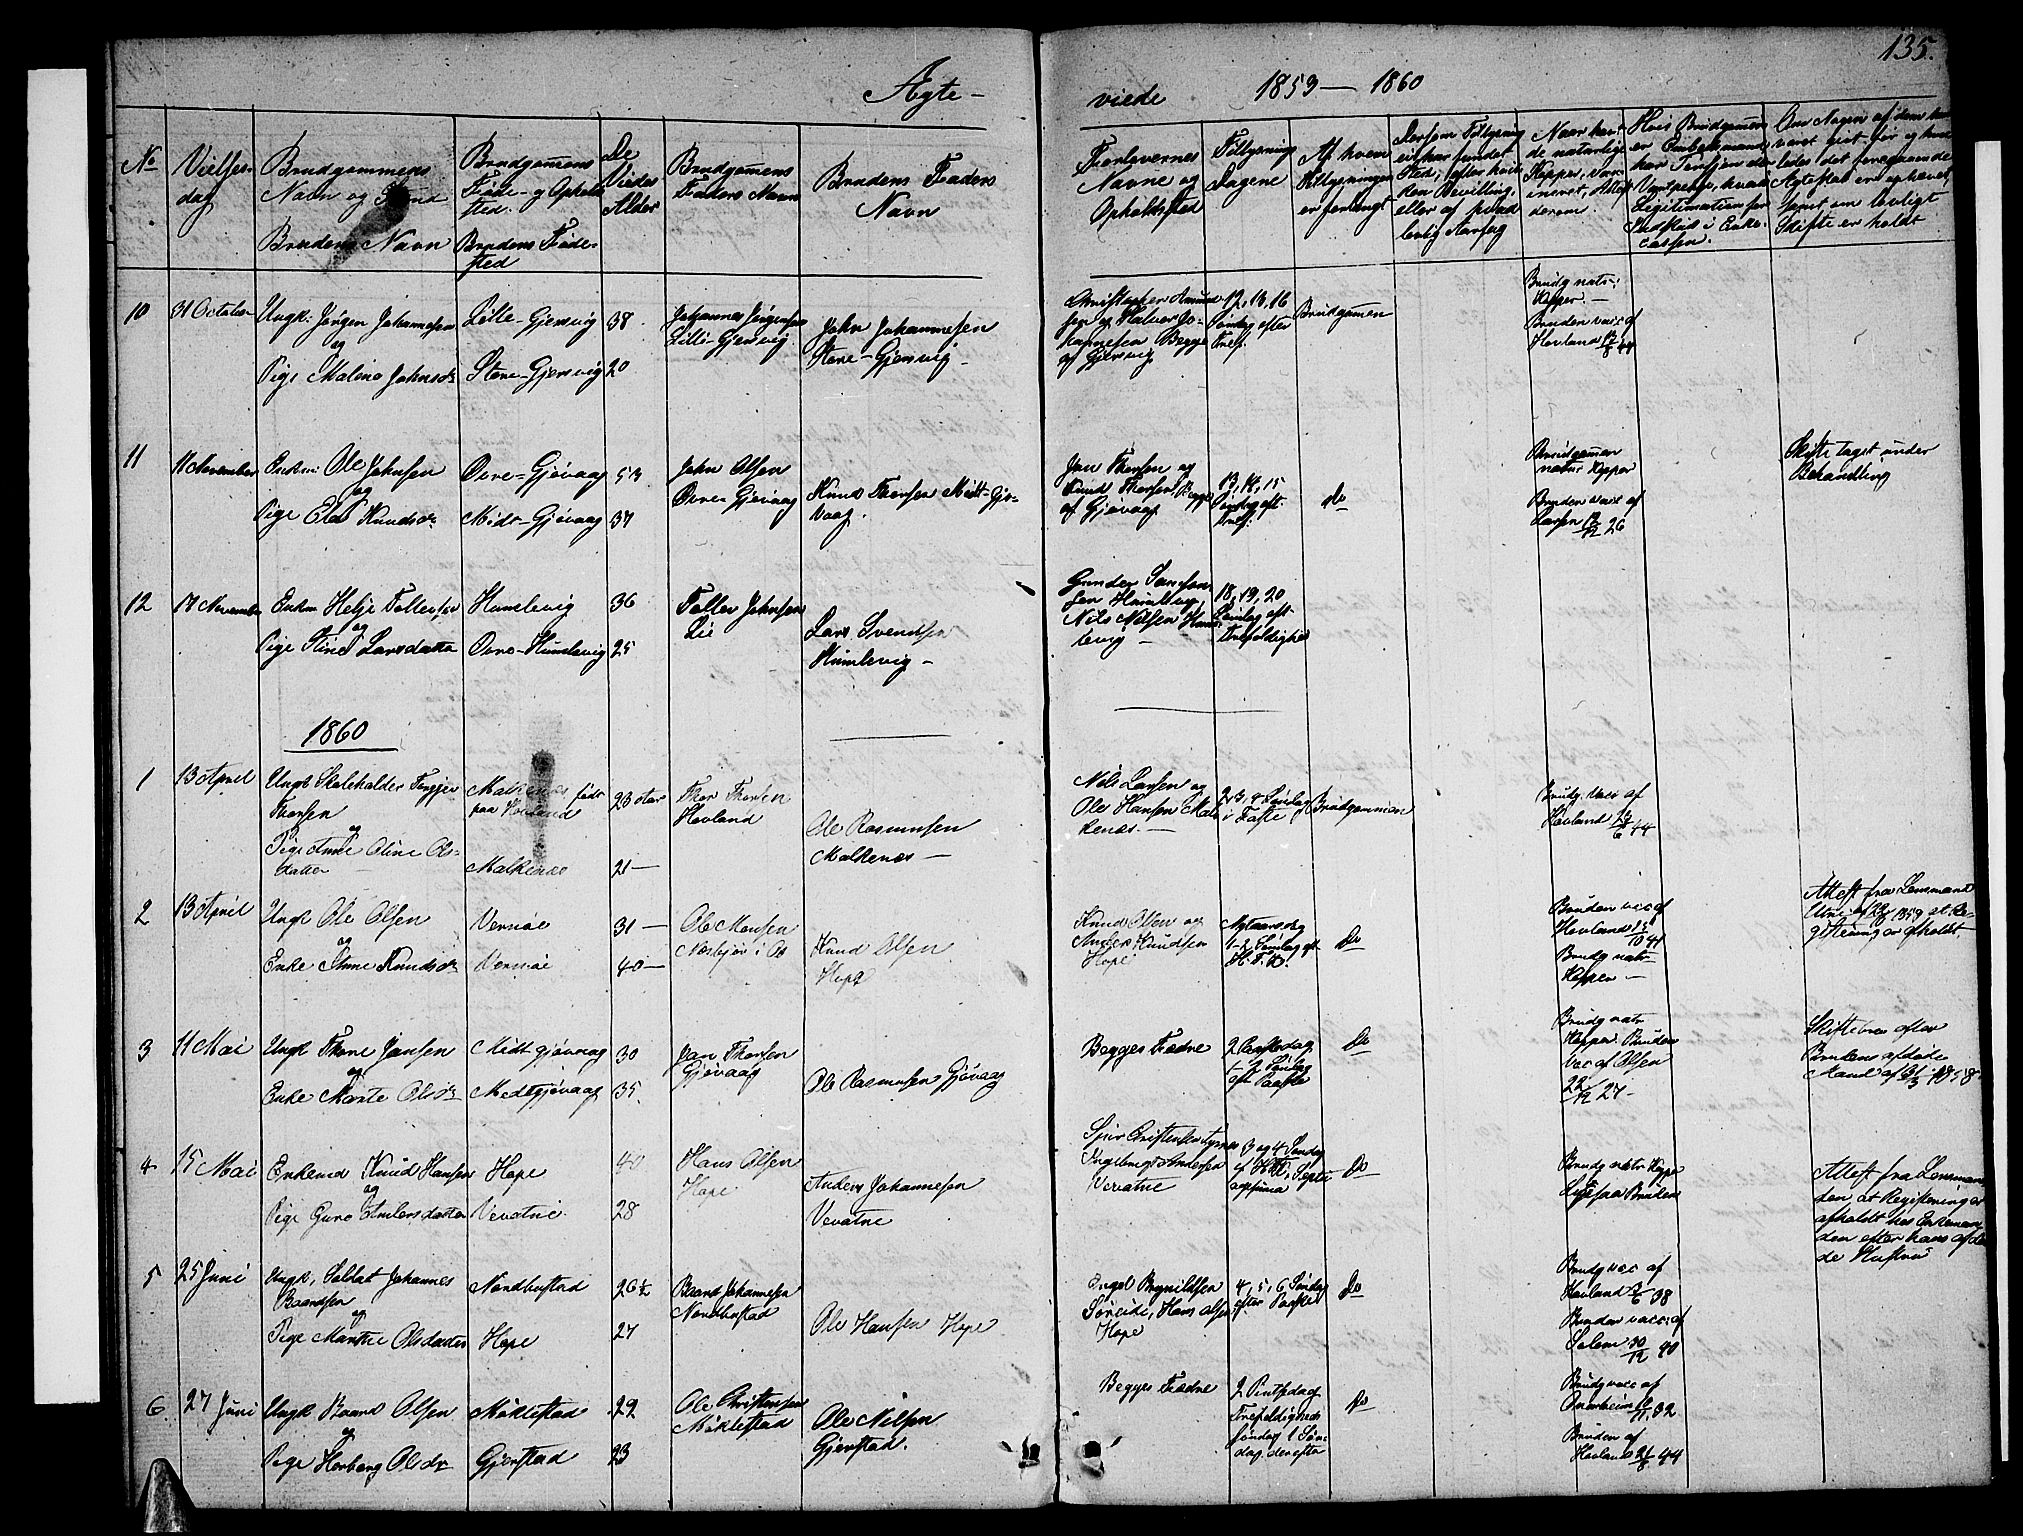 135.
Ægte-
viede 1859 — 1860
No
Vielses-
dag
Brudgommens
Navn og Stand
Brudens Navn
Brudgomens
Føde- og Opholds
sted.
Brudens Føde-
sted
De
Viedes
Alder
Brudgomens
Faders Navn
Brudens Faders
Navn
Forlovernes
Navne og
Opholdssted
Tillysnings
Dagene
Af hvem
Tillysningen
er forlangt
Dersom Tillysning
ei har fundet
Sted, efter hvil
ken Bevilling,
eller af
lovlig Aarsag
Naar hav-
de naturlige
Kopper, vac-
cineret, Attest
derom.
Hvis Brudgomen
er Enkemand
Om Nogen af dem har
været gift før og hvor
ledes det foregaaende
Ægteskab er ophævet,
samt om lovligt
Skifte er holdt
10
31 October
Ungk: Jørgen Johannesen
og
Pige Malene Johnsdr
Lille-Gjersvig
Store-Gjersvig
38
20
Johannes Jørgensen
Lille-Gjersvig
John Johannesen
Store-Gjersvig
Christopher
sen og Halvor Jo-
hannesen Begge
af Gjersvig
12, 13, 16
Søndag efter
Tref.
Brudgomen
Brudg natr:
Kopper.—
Bruden vacc af
Hovland
11
11 November
Enkm: Ole Johnsen
og
Pige Knudsdr
Øvre-Gjøvaag
Midt-Gjøvaag
53
37
John Olsen
Øvre-Gjøvaag
Knud Thorsen Midt-Gjø-
vaag.
Jon Thorsen og
Knud Thorsen, Begge
af Gjøvaag
13, 14, 15
Søndag eft.
Tref.
do
Brudgomen
natur Kopper
Bruden vacc af
Larsen 12/12 26
Skifte taget under
Behandling
12
17 November
Enkm Helje Tollevsen
og
Pige Stine Larsdatter
Humlevig
Øvre-Humlevig
36
25
Tollev Johnsen
Lie
Lars Svendsen
Humlevig—
Nils Nilsen Hum-
levig—
18, 19, 20
Søndag eft.
Trefoldighed
1860
1
13 April
Ungk Skoleholder Torgjer
Thorsen
og
Pige Anne Oline Ols-
datter
Malkenæs født
paa Hovland
Malkenæs
23
21—
Thor Thorsen
Hovland
Ole Rasmussen
Malkenæs—
Nils Larsen og
Ole Hansen Mal
kenæs.—
2, 3, 4 Søndag
i Faste
Brudgomman
Brudg vacc af
Hovland 44
2
13 April
Ungk Ole Olsen
og
Enke Anne Knudsdr
Vernøe
Vernøe
31—
40—
Ole Monsen
i Os
Knud Olsen
Hope
Knud Olsen og
Anders Knudsen
Hope
Nytaarsdag
1-2 Søndag eft
H. T. K.
Do
Bruden vacc af
Hovland
Brudg natr
Kopper—
Attest fra Lensmand
gistrering er afholdt
3
11 Mai
Ungk Thore Jonsen
og
Enke Marte Olsdr
Midtgjøvaag
Midtgjøvaag
30
35.
Jon Thorsen
Gjøvaag
Ole Rasmussen Gjøvaag
Begges Fædre
2 Paaskedag
1-2 Søndag
eft Paaske
Do
Brudg natr
Kopper. Bruden
vac af Olsen
22/12 27—
Skiftebrev efter
Brudens afdøde
Mand af
4
15 Mai
Enkemd Knud Hansen
og
Pige Guro Andersdatter
Hope
Vevatne
40
28
Hans Olsen
Hope
Anders Johannesen
Vevatne
Sjur Christensen Tysnes
Ingebrigt Andersen
Vevatne
3 og 4 Søndag
Do
Brudg natr Kopper
Bruden
Attest fra Lensman-
den at Registrering er
afholdt hos Enkeman-
den efter hans afdø-
de Hustru
5
25 Juni
Ungk, Soldat Johannes
Baardsen
og
Pige Marthe Olsdatter
Nordbustad
Hope
26½
27
Baard Johannesen
Nordbustad
Ole Hansen Hope
Brynildsen
Søreide, Hans Olsen
Hope
4, 5, 6 Søndag
efter Paaske
Do
Brudg vacc af
Hovland 38
Bruden vacc: af
Salem 30/12 40
6
27 Juni
Ungk Baard Olsen
og
Pige Herborg Olsdr
Møklestad
Gjerstad
29
23
Ole Christensen
Møklestad
Ole Nilsen
Gjerstad.
Begges Fædre
2 Pintsedag
Trefoldigheds
søndag 1 Søn-
dag derefter
Do
Brudg vacc af
32
Bruden af
Hovland 44